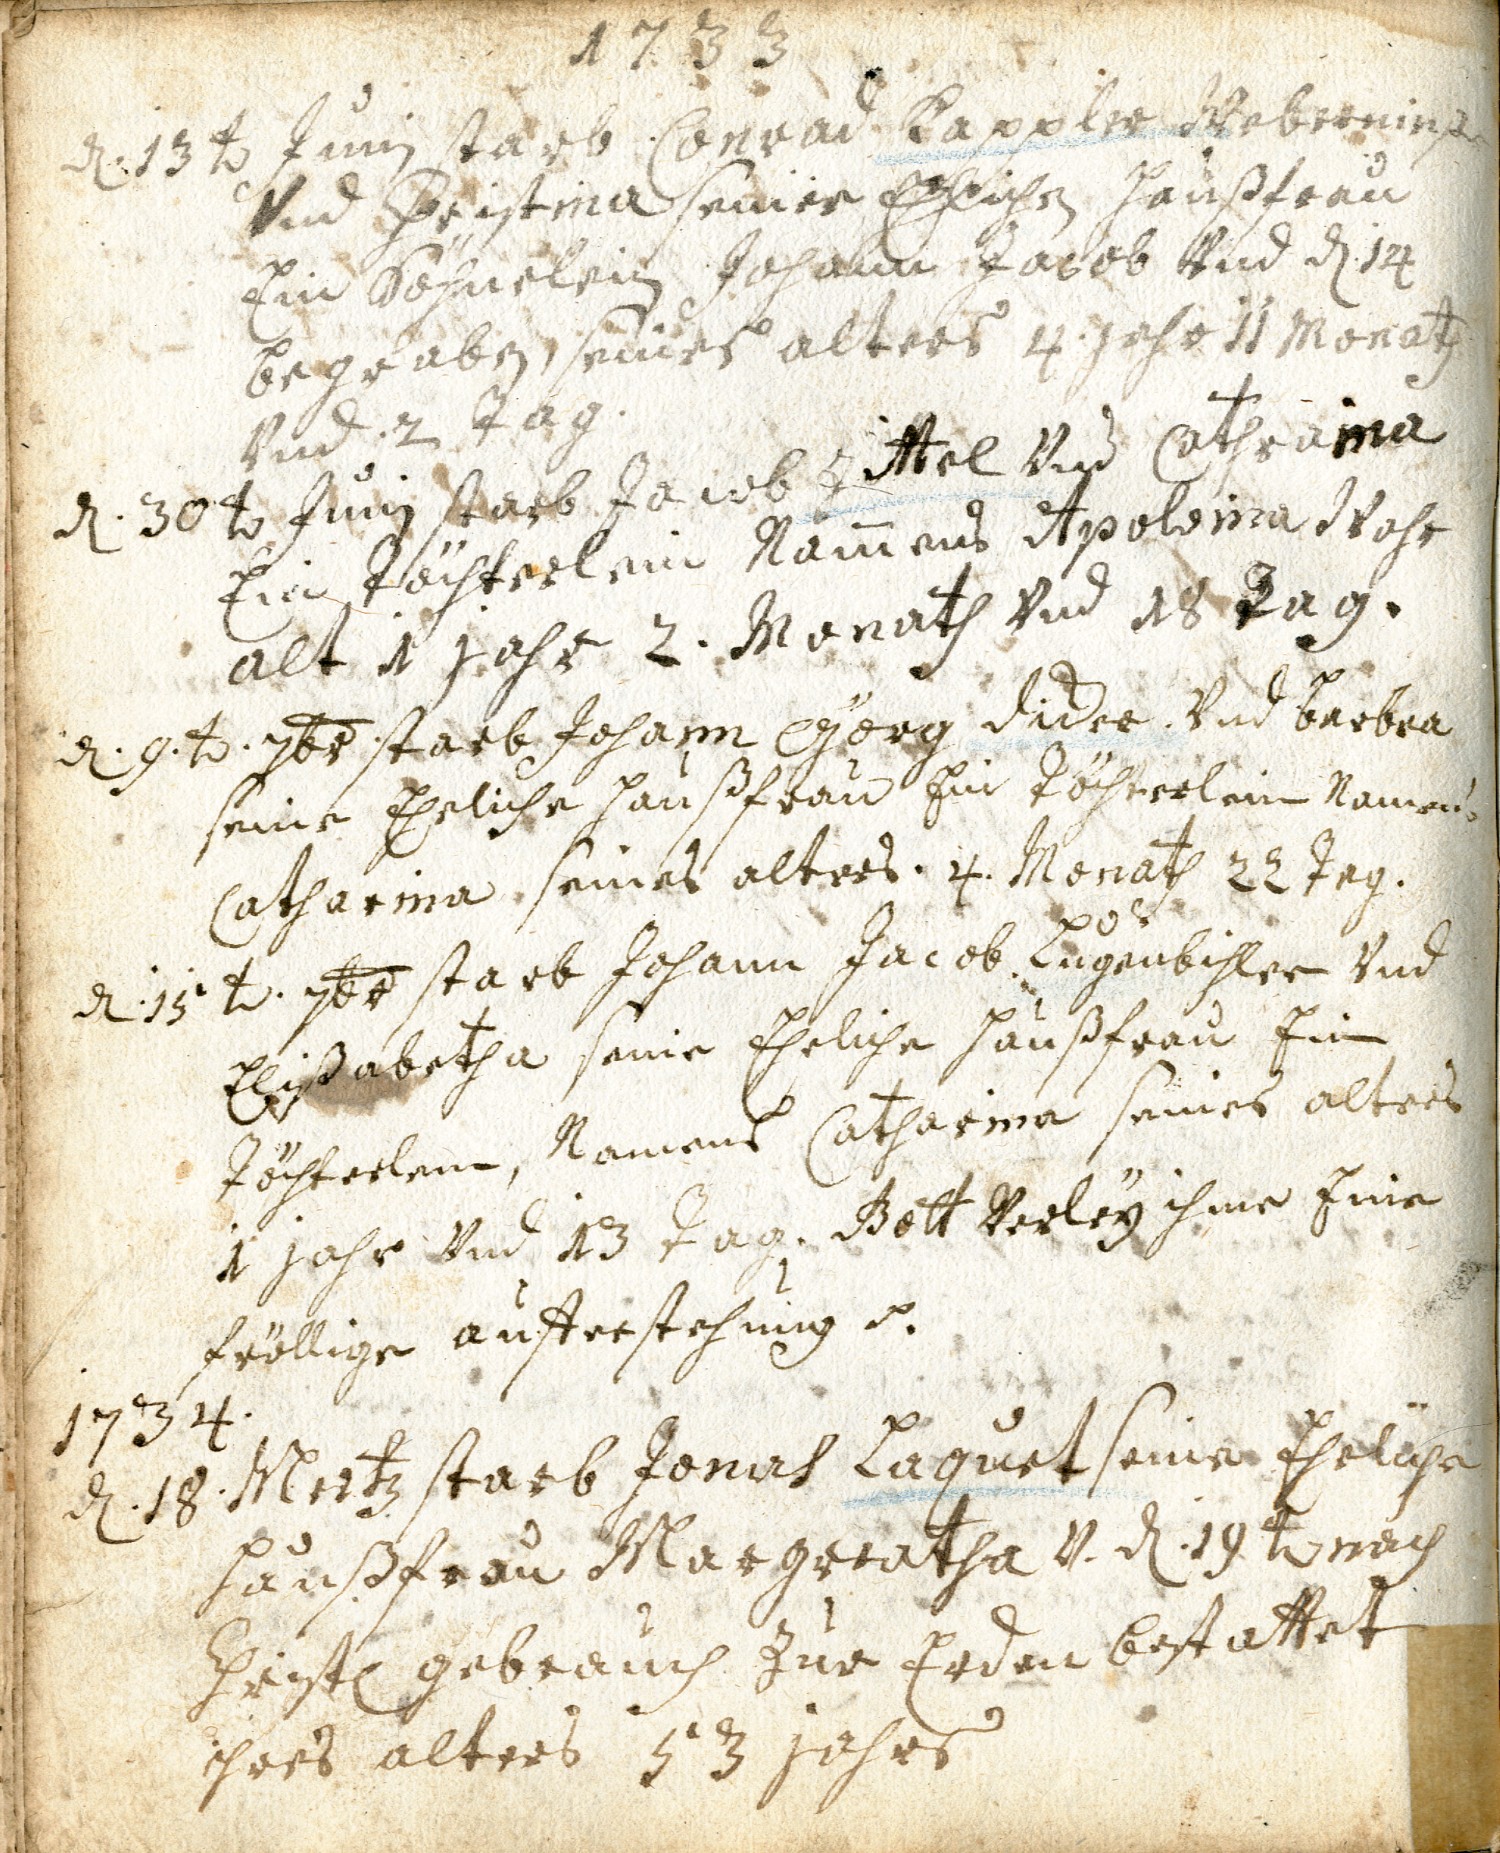 1733
d. 13t Junij starb Conrad Kappler Weber
Vnd Christina seiner Ehelichen Haußfrau
Ein Söhnelein Johann Jacob Vnd d. 14
begraben, seines alters 4. jahr 11 Monath
Vnd 2 Tag.
d. 30t Junij starb Jacob Vnd Cathraina
Ein Töchterlein Nam̅ens Apolonia Wahr
alt 1 jahr 2. Monath Vnd 18 Tag.
d. 9.t. 7br starb Johann Gÿorg didre Vnd barbra
seine Eheliche Haußfrau Ein Töchterlein Namens
Catharina seines alters. 4. Monath 22 Tag.
d. 15t. 7br starb Johann Jacob Lugenbihler Vnd
Elißabetha seine Eheliche Haußfrau Ein
Töchterlein, Namens Catharina seines alters
1 jahr Vnd 13 Tag. Gott Verleÿ ihme Eine
fröllige aufferstehung
1734.
d. 18. Mertz starb Jonas Laquet seine Eheliche
Haußfrau Margreatha V. d. 19t nach
Christl gebrauch Zur Erden bestattet
ihres alters 53 jahrs